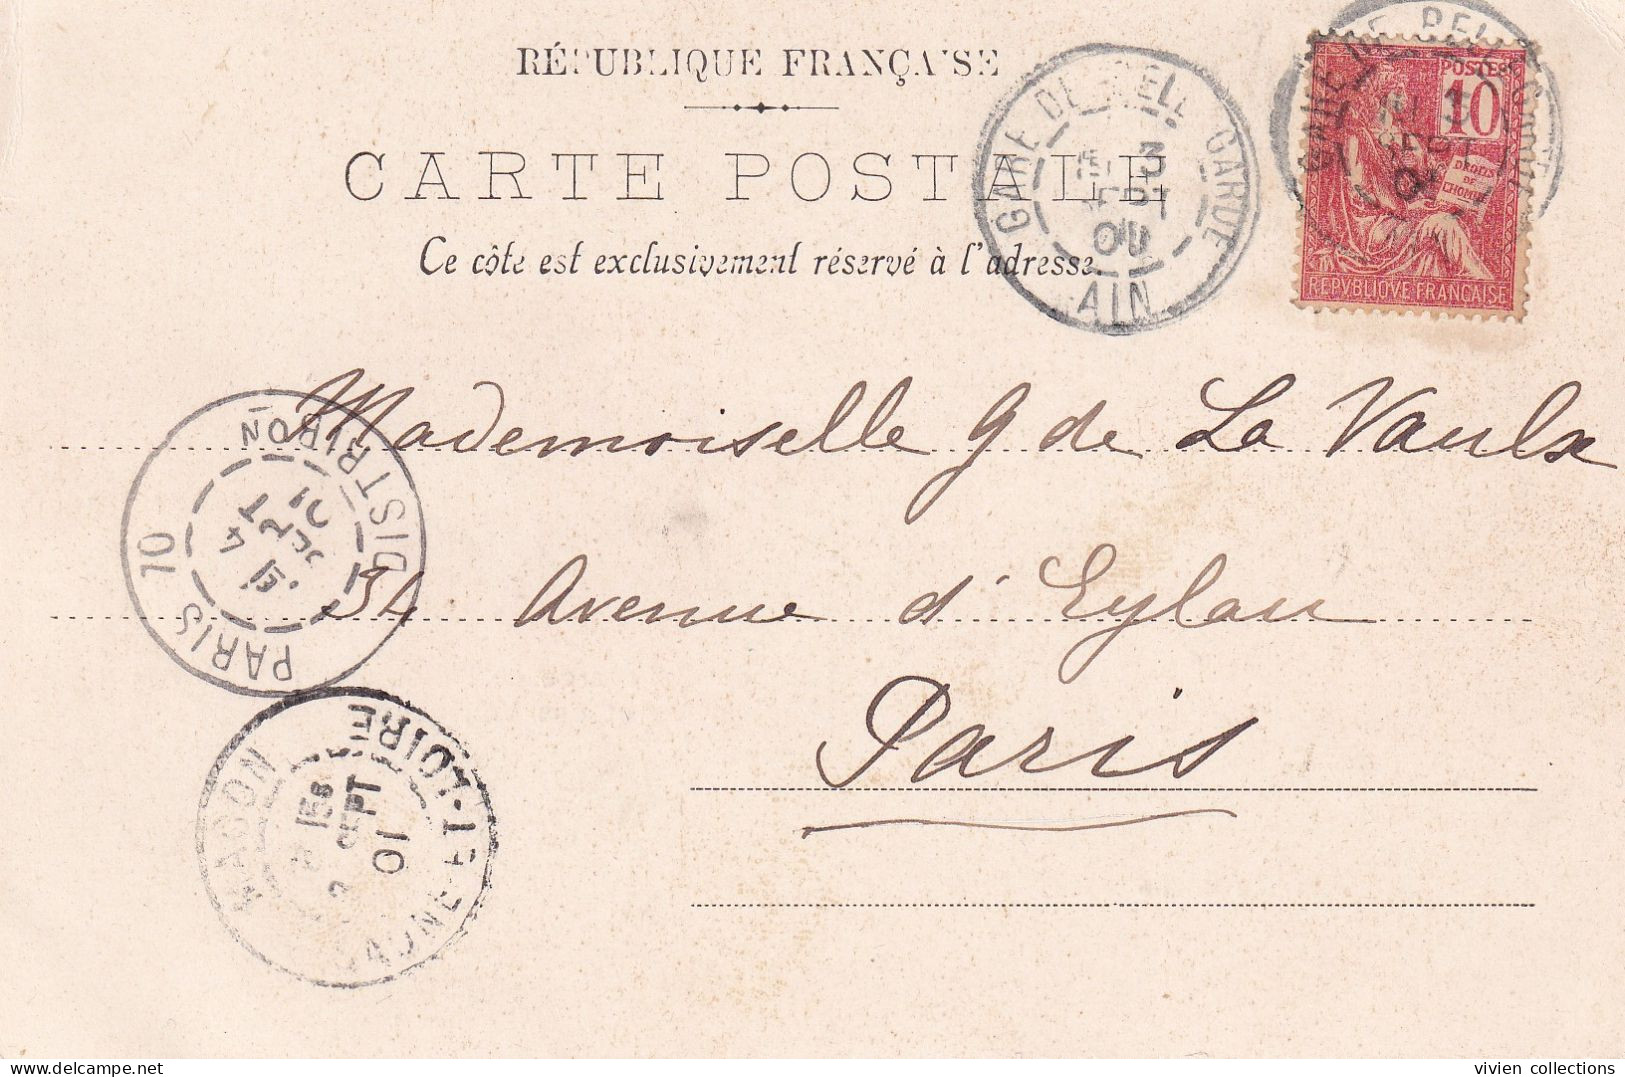 RÉPUBLIQUE FRANÇAISE
CARTE POSTALE
Ce côté est exclusivement réservé à l'adresse.
GARE DE BELLEGARDE
3
SEPT
AIN
POSTES
10
DROITS
DE
L'HOMME
REPVBLIQVE FRANÇAISE
Mademoiselle G de La Vaulx
34 Avenue d'Eylau
Paris
PARIS 10 DISTRIBON
4
SEPT
01
MACON
SAONE-ET-LOIRE
SEPT
01
vivien collections